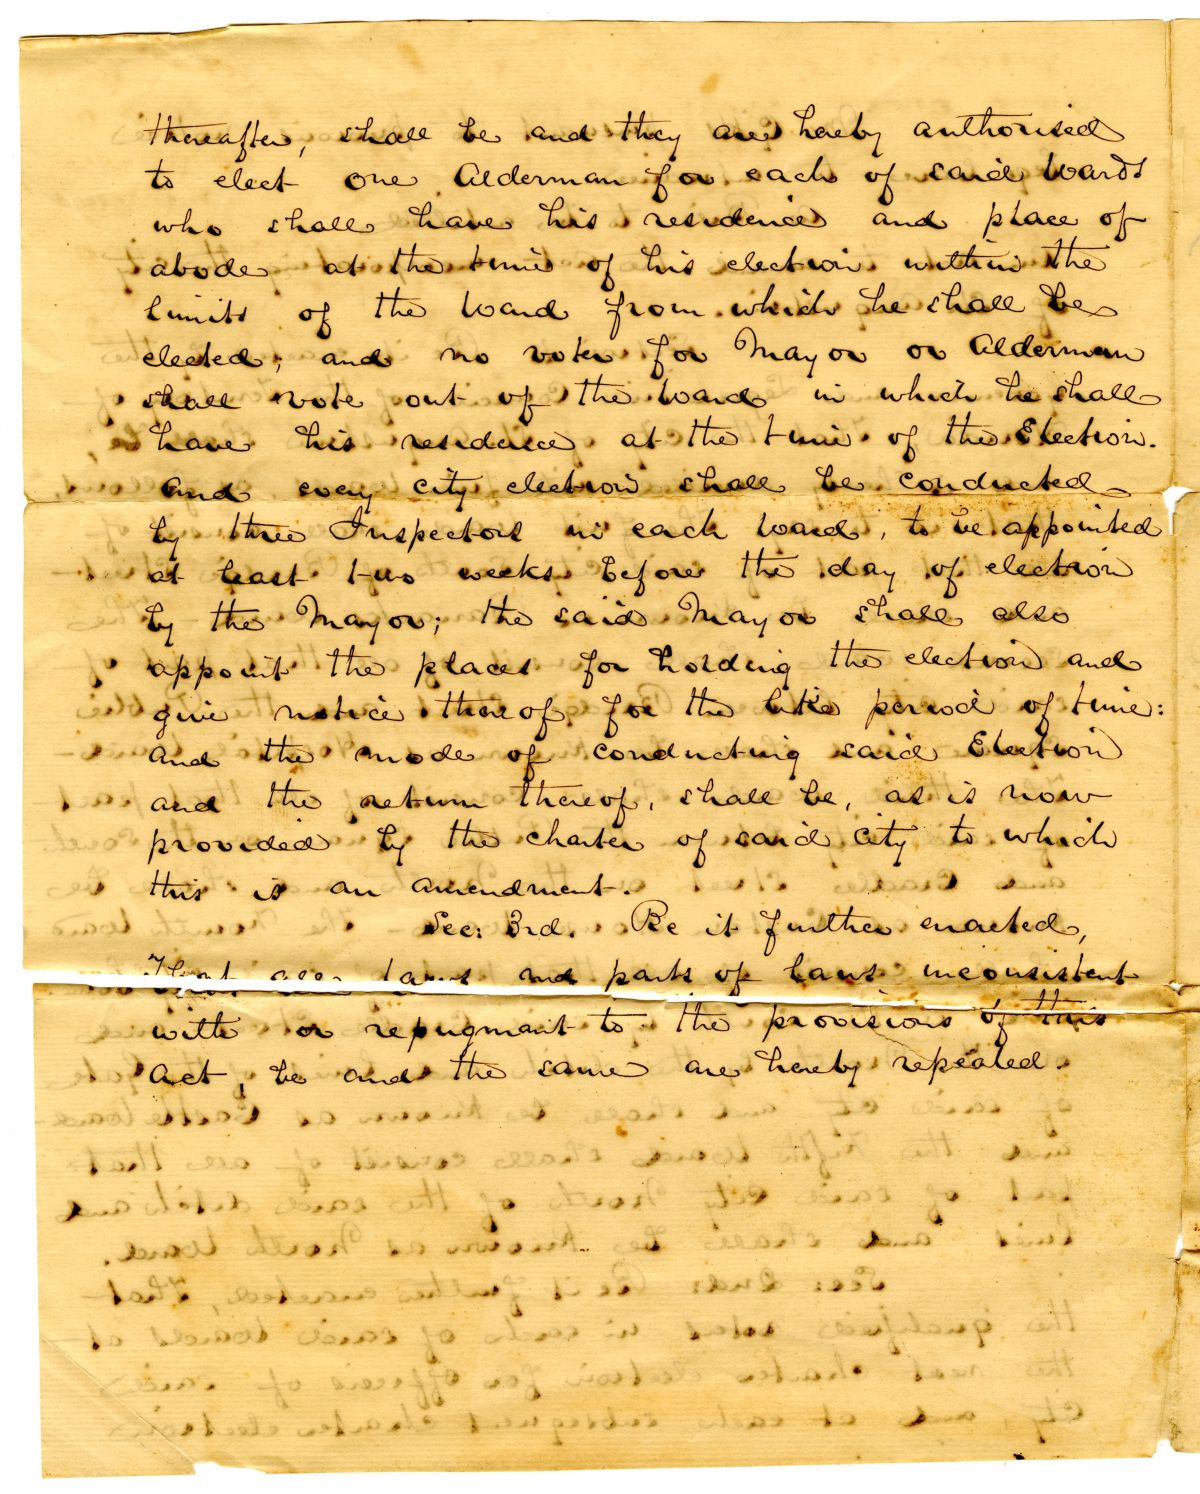 thereafter, shall be and they are hereby authorised
to elect one Alderman for each of said Wards
who shall have his residence and place of
abode at the time of his election within the
limits of the Ward from which he shall be
elected; and no voter for Mayor or Alderman
shall vote out of the Ward in which he shall
have his residence at the time of the Election.
And every city election shall be conducted
by three Inspectors in each Ward, to be appointed
at least two weeks before the day of election
by the Mayor; the said Mayor shall also
appoint the places for holding the election and
give notice thereof for the like period of time:
and the mode of conducting said Election
and the return thereof, shall be, as is now
provided by the charter of said city to which
this is an amendment.
Sec: 3rd. Be it further enacted,
That all laws and parts of laws inconsistent
with or repugnant to the provisions of this
act, be and the same are hereby repealed.